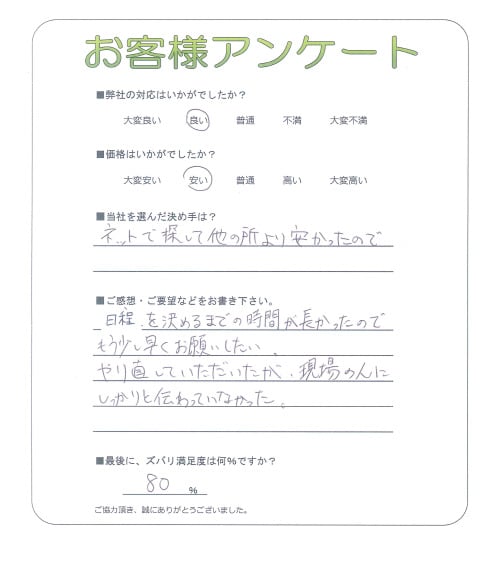 お客様アンケート
■弊社の対応はいかがでしたか？
大変良い 良い 普通 不満 大変不満
■価格はいかがでしたか？
大変安い 安い 普通 高い 大変高い
■当社を選んだ決め手は？
ネットで探して他の所より安かったので
■ご感想・ご要望などをお書き下さい。
日程を決めるまでの時間が長かったので
もう少し早くお願いしたい。
やり直していただいたが、現場の人に
しっかりと伝わっていなかった。
■最後に、ズバリ満足度は何%ですか？
80 %
ご協力頂き、誠にありがとうございました。